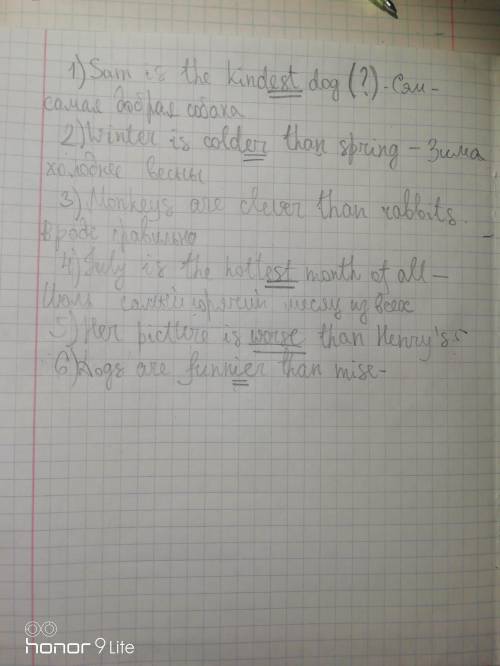 1) Sam is the kindest dog (?) - Сэм -
самая добрая собака
2) Winter is colder than spring - Зима
холоднее весны
3) Monkeys are clever than rabbits.
вроде правильно
4) July is the hottest month of all -
Июль самый горячий месяц из всех
5) Her picture is worse than Henry's
6) Dogs are funnier than mise -
honor 9 Lite